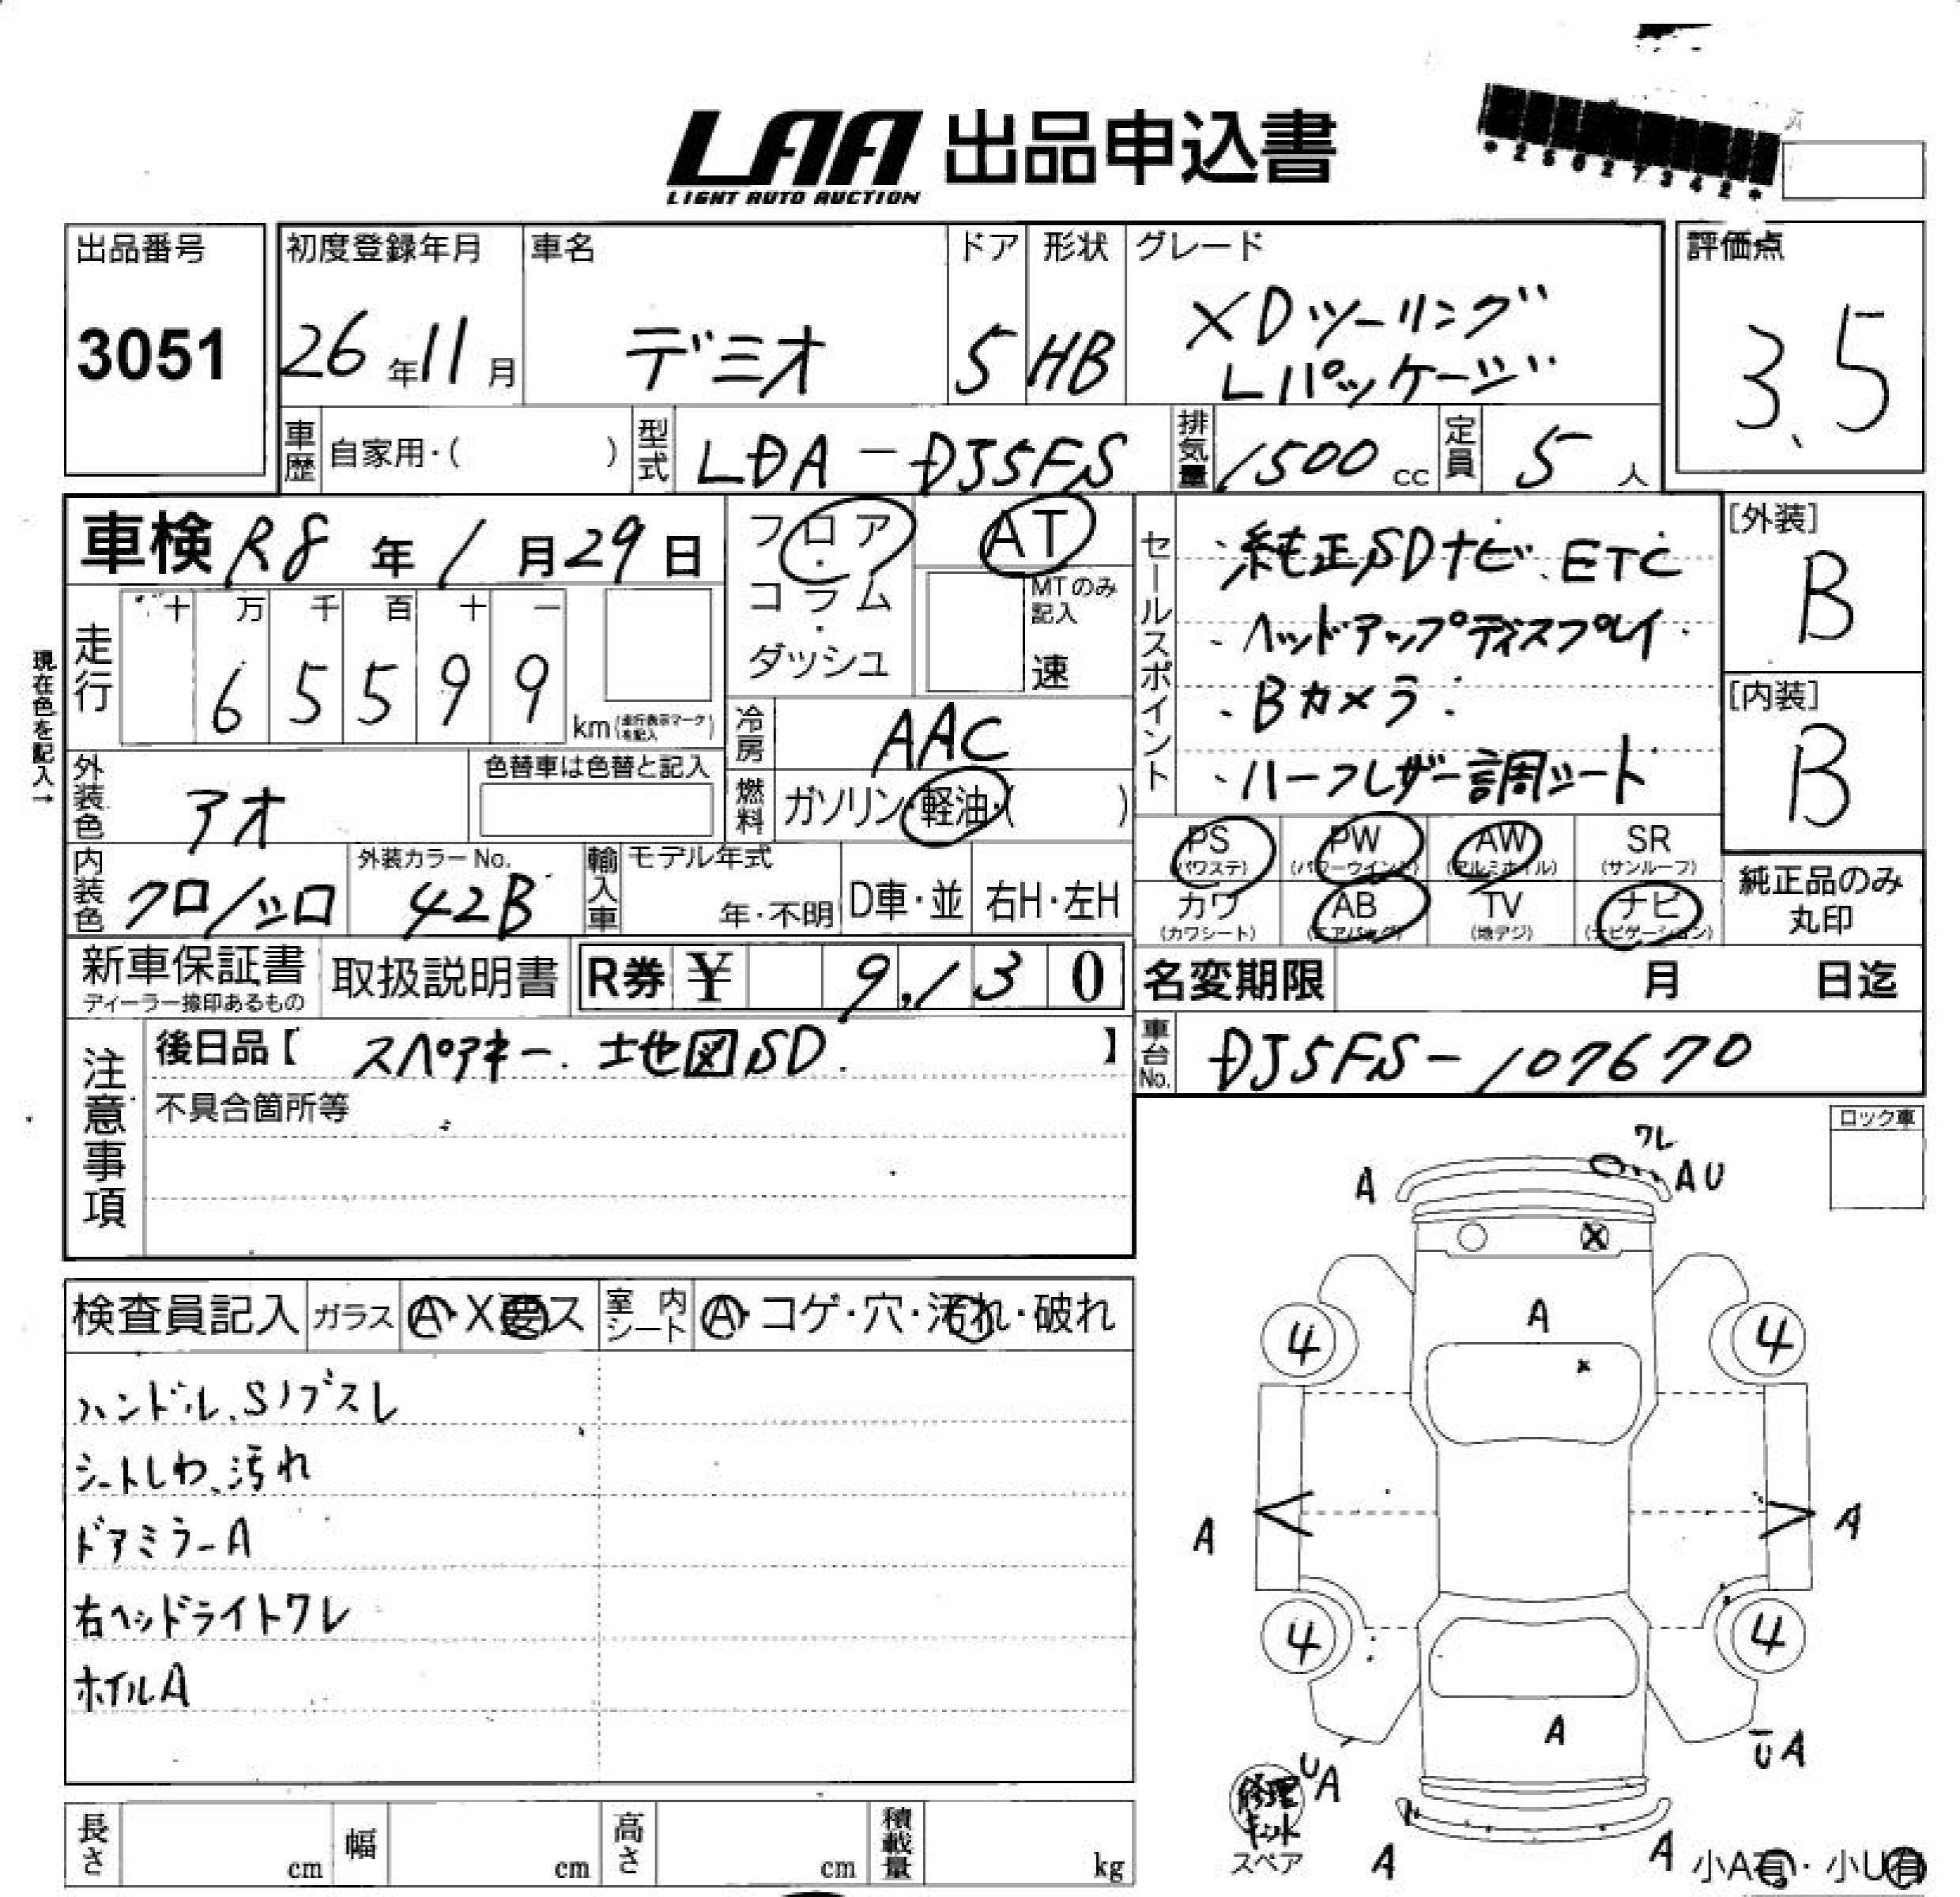 LAA 出品申込書
LIGHT AUTO AUCTION
*25027342*
出品番号 初度登録年月 車名 ドア 形状 グレード 評価点
3051 26年11月 デミオ 5 HB XDツーリング
Lパッケージ 3.5
車歴 自家用・( ) 型式 LDA-DJ5FS 排気量 1500cc 定員 5人
車検 R8年1月29日 フロア・コラム・ダッシュ AT
MTのみ記入
速
現在色を記入→
走行 十 万 千 百 十 一
6 5 5 9 9 km(走行表示マークを記入)
冷房 AAC
外装色 アオ 色替車は色替と記入
燃料 ガソリン・軽油・( )
内装色 クロ/シロ 外装カラーNo. 42B 輸入車 モデル年式 年・不明 D車・並 右H・左H
セールスポイント
・純正SDナビ、ETC
・ヘッドアップディスプレイ
・Bカメラ
・ハーフレザー調シート
[外装]
B
[内装]
B
PS PW AW SR
(パワステ) (パワーウインド) (アルミホイル) (サンルーフ)
カワ AB TV ナビ
(カワシート) (エアバッグ) (地デジ) (ナビゲーション)
純正品のみ
丸印
新車保証書 取扱説明書 R券 ¥ 9,130
ディーラー捺印あるもの
名変期限 月 日迄
注意事項
後日品【 スペアキー. 地図SD. 】
不具合箇所等
車台No. DJ5FS-107670
ロック車
検査員記入 ガラス A・X要ス 室内シート A・コゲ・穴・汚れ・破れ
ハンドル、Sノブスレ
シートしわ、汚れ
ドアミラーA
右ヘッドライトワレ
ホイルA
ワレ
A AU
X
A
4 4
x
A A
4 4
A
UA UA
修理キット
スペア
A A
小A有・小U有
長さ cm 幅 cm 高さ cm 積載量 kg